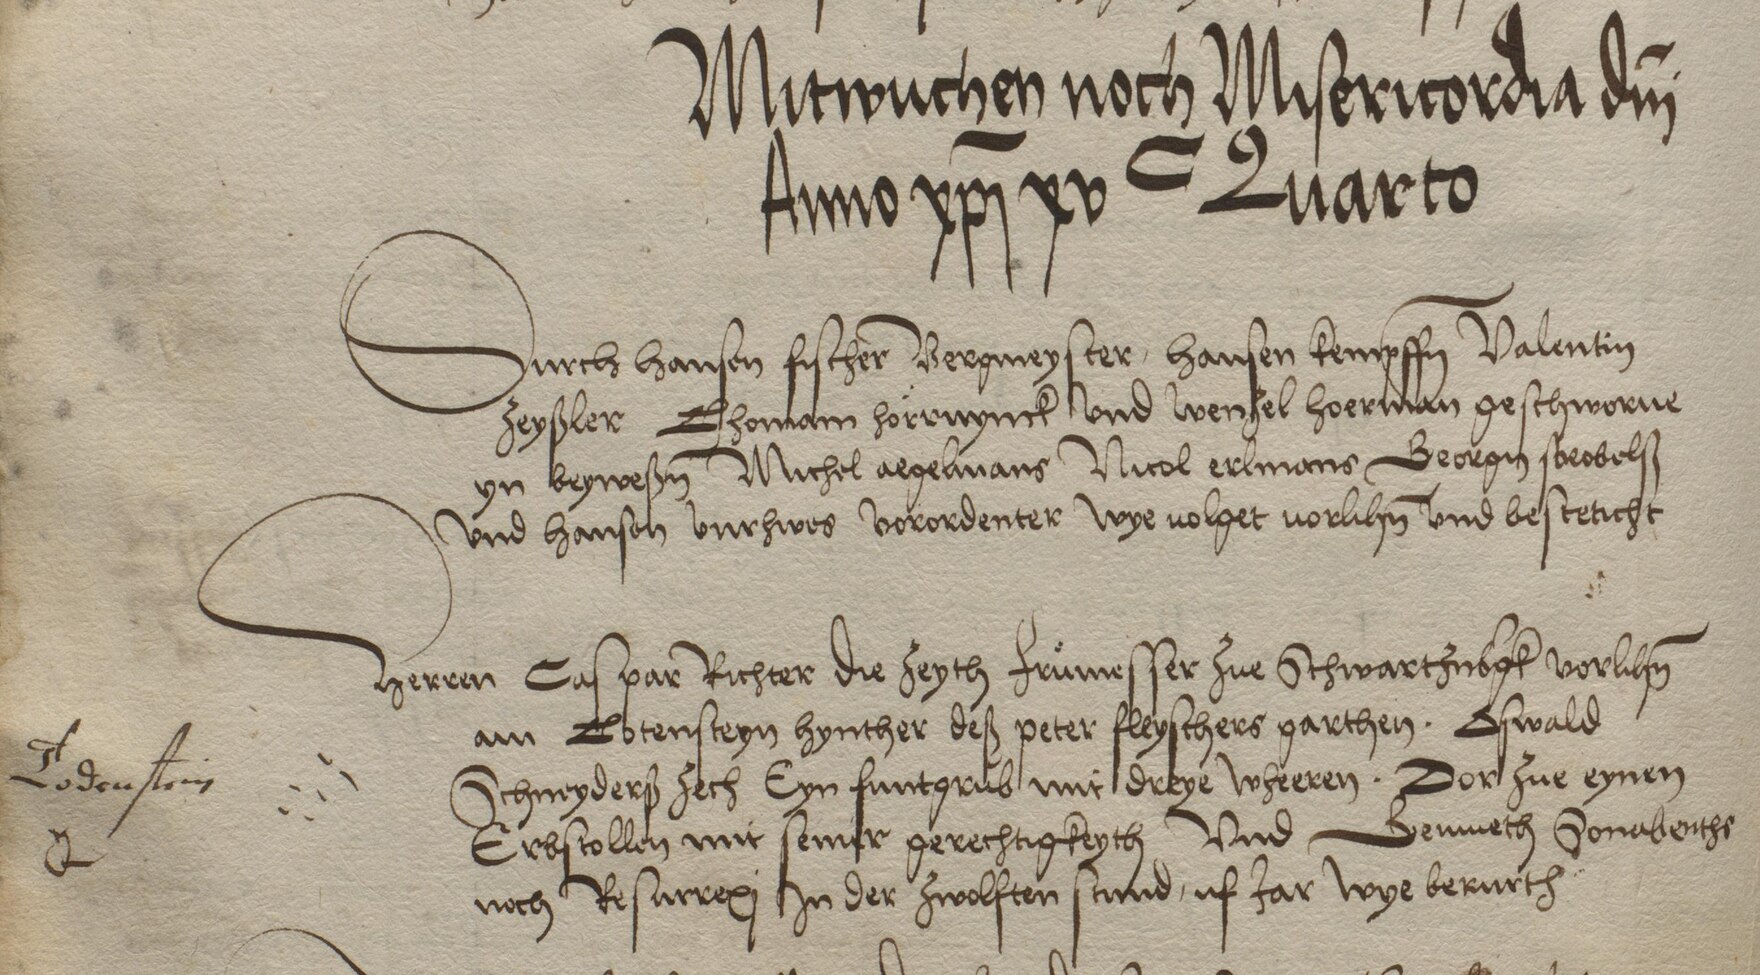 Mitwuchen noch Misericordia dni
Anno xpi xv C Quarto
Durch hansen fischer Bergmeyster, hansen kempffn Valentin
Zeyßler Thomam hörrwynck vnd wenzel hoerman geschworne
yn beyweßn Michel aegelmans Nicol erlmans Georgn strobelß
vnd hansen vorordenter wye uolget uorlihn vnd besteticht
Herren Caspar Richter die Zeyth frumesser Zue Schwartznbgk vorlihn
am Totensteyn hynther deß peter fleyschers garthen. Oswald
Todenstein
Schneyderß Zech Eyn funtgrub mit dreye wheeren. Dor Zue eynen
Erbstollen mit seiner gerechtigkeyth Vnd Gemueth Sonabenths
noch Resurrexj In der Zwolften stund, uf Jar wye berurth